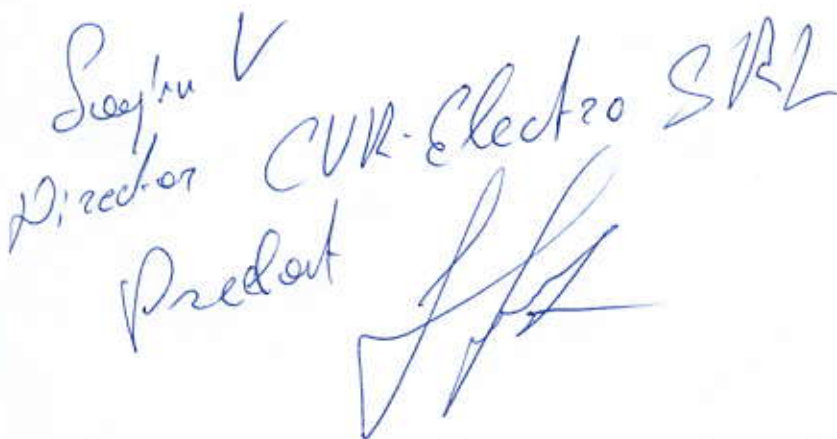 V
Director CVR-Electro SRL
Predat